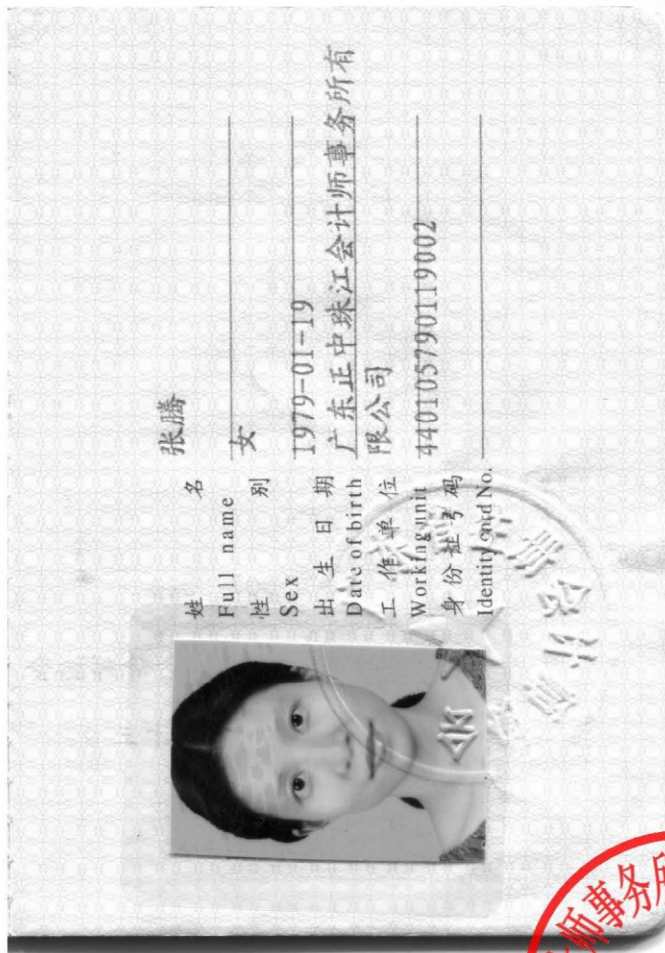 姓 名 张腾
Full name
性 别 女
Sex
出 生 日 期 1979-01-19
Date of birth
工 作 单 位 广东正中珠江会计师事务所有
限公司
Working unit
身份证号码 440105790119002
Identity card No.
师事务所